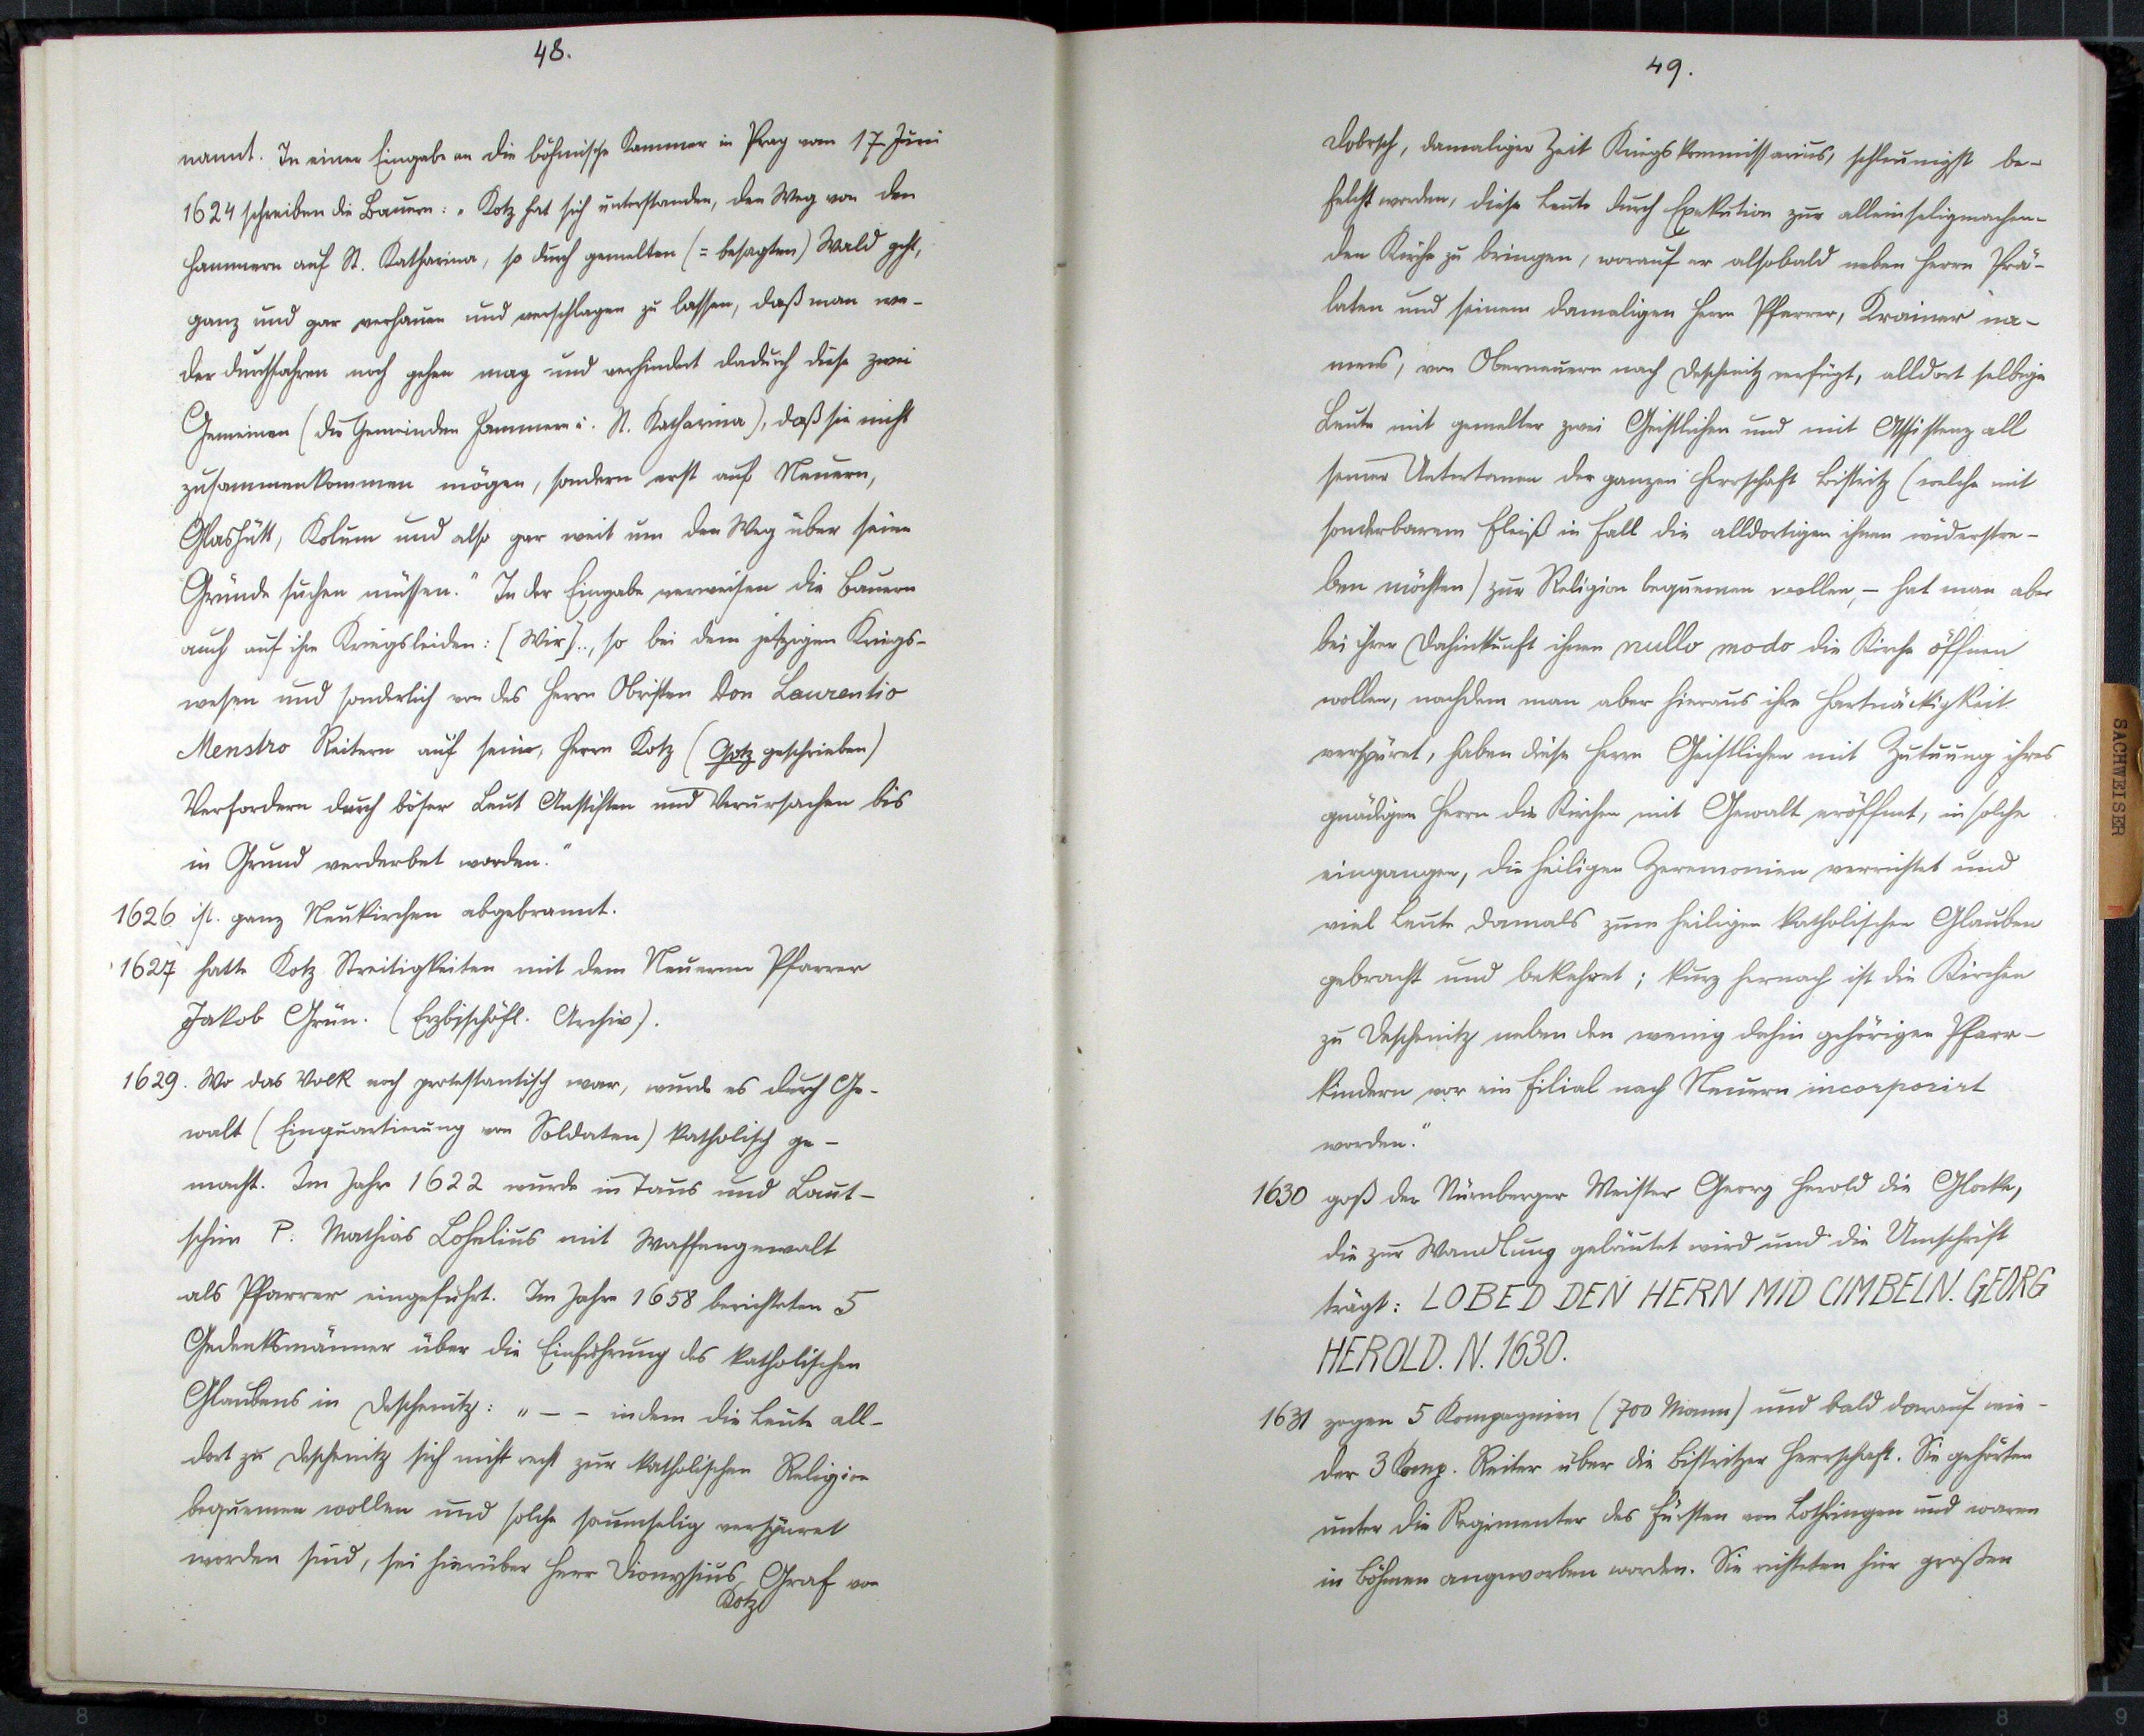 48.
nannt. In einer Eingabe an die böhmische Kammer in Prag vom 17. Juni
1624 schreiben die Bauern: „Kotz hat sich unterstanden, den Weg von den
Hammern auf St. Katharina, so durch gemelten (= besagten) Wald geht,
ganz und gar verhauen und verschlagen zu lassen, daß man we-
der durchfahren noch gehen mag und verhindert dadurch diese zwei
Gemeinen (die Gemeinden Hammern u. St. Katharina), daß sie nicht
zusammenkommen mögen, sondern erst auf Neuern,
Glashütt, Kolum und also gar weit um den Weg über seine
Gründe suchen müssen." In der Eingabe verweisen die Bauern
auch auf ihre Kriegsleiden: [Wir].., so bei dem jetzigen Kriegs-
wesen und sonderlich von des Herrn Obristen Don Laurentio
Menstro Reitern auf seine, Herrn Kotz (Gotz geschrieben)
Verfordern durch böser Leut Anstiften und Verursachen bis
in Grund verderbet worden."
1626 ist ganz Neukirchen abgebrannt.
1627 hatte Kotz Streitigkeiten mit dem Neuerner Pfarrer
Jakob Grün. (Erzbischöfl. Archiv).
1629. Wo das Volk noch protestantisch war, wurde es durch Ge-
walt (Einquartierung von Soldaten) katholisch ge-
macht. Im Jahre 1622 wurde in Taus und Laut-
schim P. Mathias Lohelius mit Waffengewalt
als Pfarrer eingeführt. Im Jahre 1658 berichteten 5
Gedenksmänner über die Einführung des katholischen
Glaubens in Deschenitz: „ – – indem die Leute all-
dort zu Deschenitz sich nicht recht zur katholischen Religion
bequemen wollen und solche saumselig verspüret
worden sind, sei hierüber Herr Dionysius Graf von
Kotz
49.
Dobrsch, damaliger Zeit Kriegskommissarius, schleunigst be-
felcht worden, diese Leute durch Exekution zur alleinseligmachen-
den Kirche zu bringen, worauf er alsobald neben Herrn Prä-
laten und seinem damaligen Herrn Pfarrer, Krainer na-
mens, von Oberneuern nach Deschenitz verfügt, alldort selbige
Leute mit gemelter zwei Geistlichen und mit Assistenz all
seiner Untertanen der ganzen Herrschaft Bistritz (welche mit
sonderbarem Fleiß in Fall die alldortigen ihnen widerstre-
ben möchten) zur Religion bequemen wollen, – hat man aber
bei ihrer Dahinkunft ihnen nullo modo die Kirche öffnen
wollen, nachdem man aber hieraus ihre Hartnäckigkeit
verspüret, haben diese Herrn Geistlichen mit Zutuung ihres
gnädigen Herrn die Kirchen mit Gewalt eröffnet, in solche
eingangen, die heiligen Zeremonien verrichtet und
viel Leute damals zum heiligen katholischen Glauben
gebracht und bekehret; kurz hernach ist die Kirchen
zu Deschenitz neben den wenig dahin gehörigen Pfarr-
kindern vor ein Filial nach Neuern incorporirt
worden."
1630 goß der Nürnberger Meister Georg Herold die Glocke,
die zur Wandlung geläutet wird und die Umschrift
trägt: LOBED DEN HERN MID CIMBELN. GEORG
HEROLD. N. 1630.
1631 zogen 5 Kompagnien (700 Mann) und bald darauf wie-
der 3 Komp. Reiter über die Bistritzer Herrschaft. Sie gehörten
unter die Regimenter des Fürsten von Lothringen und waren
in Böhmen angeworben worden. Sie richteten hier großen
SACHWEISER